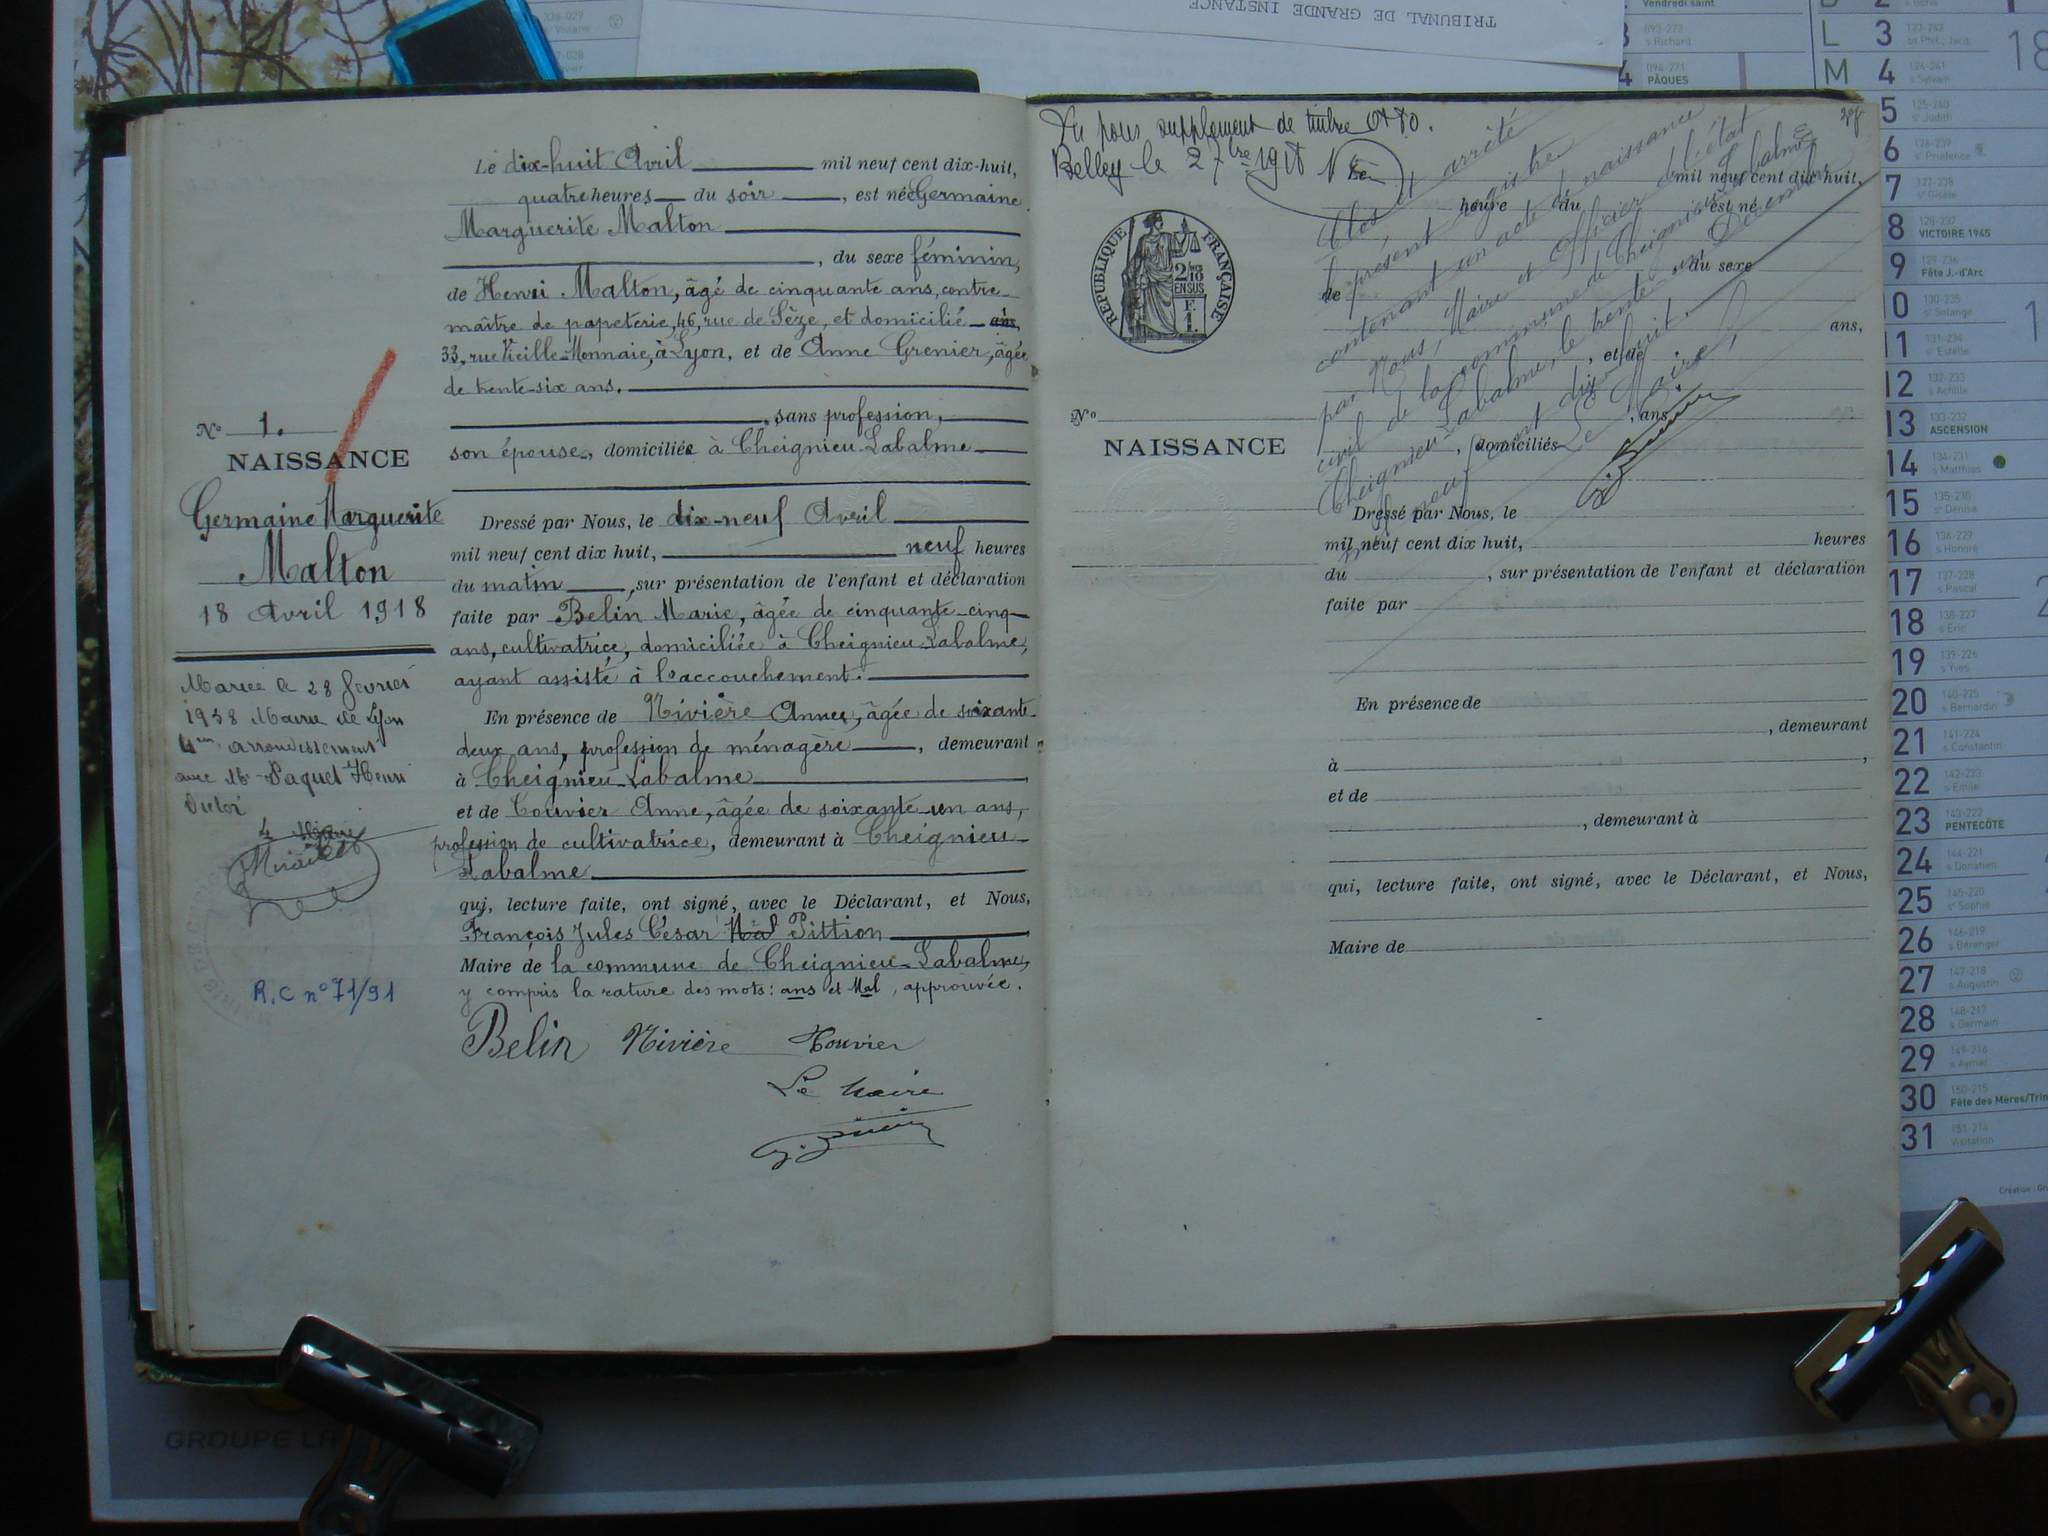 TRIBUNAL DE GRANDE INSTANCE
Le dix-huit Avril mil neuf cent dix-huit,
quatre heures du soir, est née Germaine
Marguerite Malton
, du sexe féminin,
de Henri Malton, âgé de cinquante ans, contre-
maître de papeterie, 46, rue de Sèze, et domicilié ans,
33, rue Vieille-Monnaie, à Lyon, et de Anne Grenier, âgée
de trente-six ans.
, sans profession,
son épouse, domiciliée à Cheignieu-Labalme
Dressé par Nous, le dix-neuf Avril
mil neuf cent dix huit, neuf heures
du matin, sur présentation de l'enfant et déclaration
faite par Belin Marie, âgée de cinquante-cinq
ans, cultivatrice, domiciliée à Cheignieu-Labalme,
ayant assisté à l'accouchement.
En présence de Rivière Anne, âgée de soixante-
deux ans, profession de ménagère, demeurant
à Cheignieu-Labalme
et de Touvier Anne, âgée de soixante-un ans,
profession de cultivatrice, demeurant à Cheignieu-
Labalme
qui, lecture faite, ont signé, avec le Déclarant, et Nous,
François Jules César Mal Pittion
Maire de la commune de Cheignieu-Labalme,
y compris la rature des mots: ans et Mal, approuvée.
Belin Rivière Touvier
Le Maire
No 1.
NAISSANCE
Germaine Marguerite
Malton
18 Avril 1918
Mariée le 28 février
1938 Mairie de Lyon
arrondissement
avec Mr Paquet Henri
Victor
R.C n° 71/91
Vu pour supplément de timbre
Belley le 27 1918
RÉPUBLIQUE FRANÇAISE
2 10
EN SUS
No
NAISSANCE
mil neuf cent dix huit,
heure du est né
du sexe
de
ans,
, et de
, ans
, domiciliés
Dressé par Nous, le
mil neuf cent dix huit, heures
du , sur présentation de l'enfant et déclaration
faite par
En présence de
, demeurant
à ,
et de
, demeurant à
qui, lecture faite, ont signé, avec le Déclarant, et Nous,
Maire de
Clos et arrêté
le présent registre
contenant un acte de naissance
par Nous, Maire et Officier de l'état
civil de la commune de Cheignieu-Labalme
Cheignieu-Labalme, le trente-un Décembre
mil neuf cent dix-huit.
Le Maire,
Vendredi saint
s Richard
PÂQUES
L 3
M 4
5
6
7
8 VICTOIRE 1945
9 Fête J.-d'Arc
10
11 s Estelle
12 s Achille
13 ASCENSION
14 s Matthias
15 s Denise
16 s Honoré
17 s Pascal
18 s Eric
19 s Yves
20 s Bernardin
21 s Constantin
22 s Emile
23 PENTECÔTE
24 s Donatien
25 s Sophie
26 s Bérenger
27 s Augustin
28 s Germain
29 s Aymar
30 Fête des Mères/Trin
31 Visitation
GROUPE LA